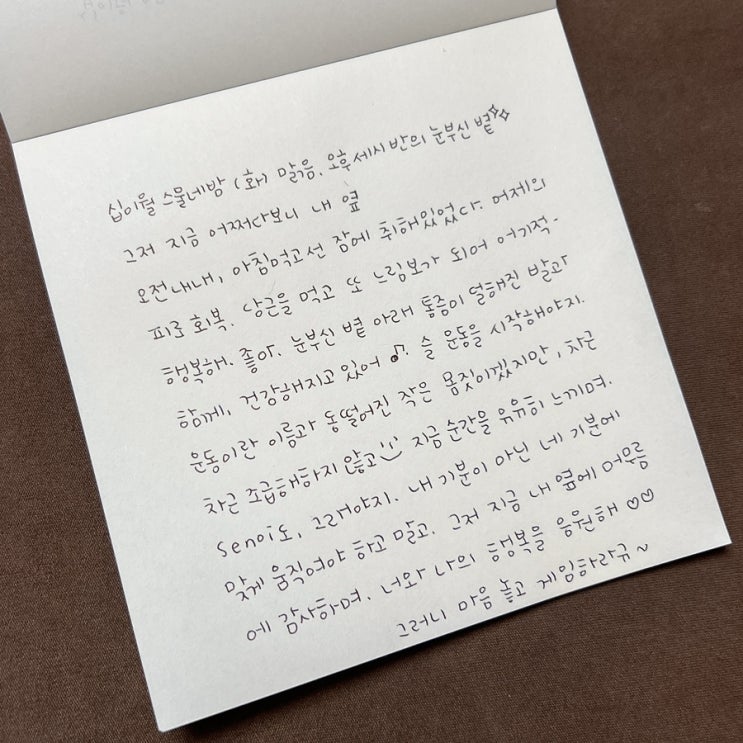 십이월 스물네밤 (화) 맑음. 오후세시반의 눈부신 볕
그저 지금 어쩌다보니 내 옆
오전내내, 아침먹고선 잠에 취해있었다. 어제의
피로 회복. 당근을 먹고 또 느림보가 되어 어기적-
행복해. 좋아. 눈부신 볕 아래 통증이 덜해진 발과
함께, 건강해지고 있어 ♪. 슬 운동을 시작해야지.
운동이란 이름과 동떨어진 작은 몸짓이겠지만, 차근
차근 조급해하지 않고 지금 순간을 유유히 느끼며.
senoi도, 그래야지. 내 기분이 아닌 네 기분에
맞게 움직여야 하고 말고. 그저 지금 내 옆에 머무름
에 감사하며. 너와 나의 행복을 응원해 ♡♡
그러니 마음 놓고 게임하라규~